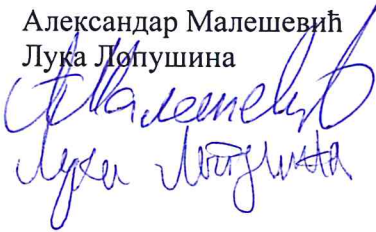 Александар Малешевић
Лука Лопушина
А Малешевић
Лука Лопушина